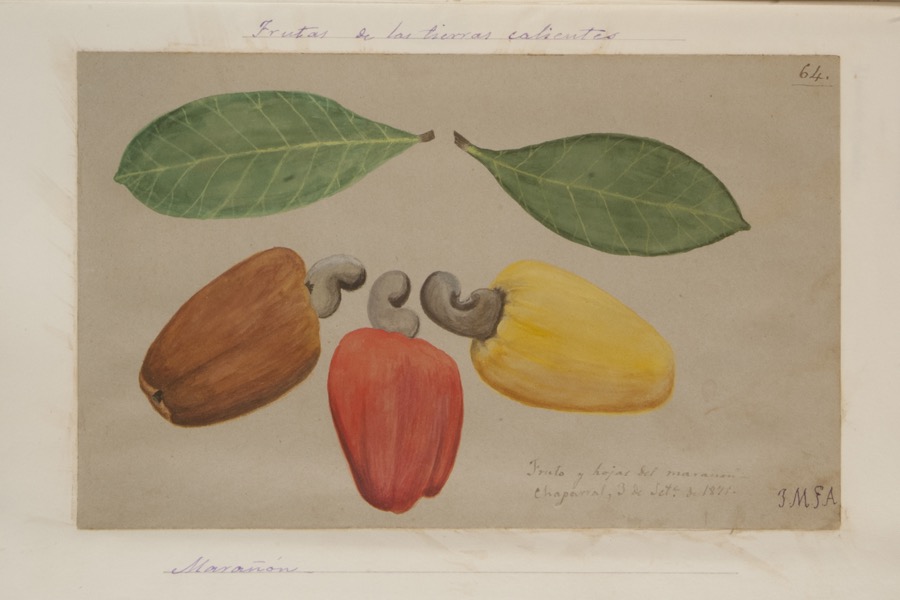 Frutas de las tierras calientes
64.
Fruto y hojas del marañon
Chaparral, 3 de Set.e de 1871.
J.M.G.A
Marañón